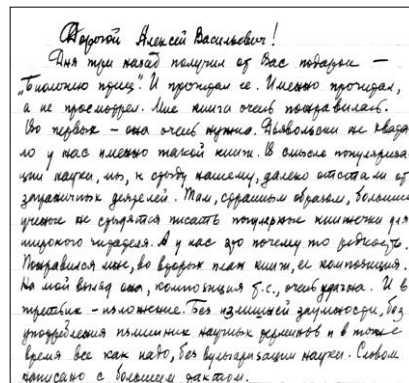 Дорогой Алексей Васильевич!
Дня три назад получил от Вас подарок —
„Биологию птиц". И прочитал ее. Именно прочитал,
а не просмотрел. Мне книга очень понравилась.
Во первых – она очень нужна. Дьявольски не хвата
ло у нас именно такой книги. В смысле популяриза
ции науки, мы, к стыду нашему, далеко отстали от
заграничных деятелей. Там, странным образом, большие
ученые не стыдятся писать популярные книжонки для
широкого читателя. А у нас это почему то редкость.
Понравился мне, во вторых план книги, ее композиция.
На мой взгляд она, композиция т.е., очень удачна. И в
третьих – изложение. Без излишней заумности, без
употребления лишних научных терминов и в тоже
время все как надо, без вульгаризации науки. Словом
написано с большим тактом.